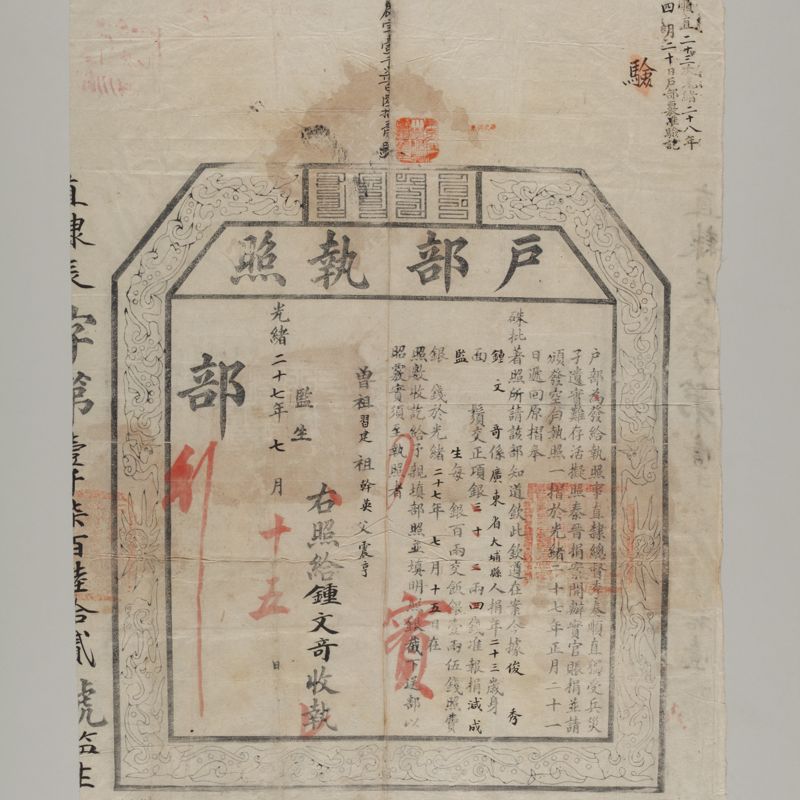 順直二十三次光緒二十八年
四月二十日戶部覆准驗訖
驗
戶部執照
戶部為發給執照事直隸總督奏順直獨受兵災
子遺實難存活擬照秦晉捐案開辦實官賑捐並請
頒發空白執照一摺於光緒二十七年正月二十一
日遞回原摺奉
硃批著照所請該部知道欽此欽遵在案今據俊秀
鍾文奇係廣東省大埔縣人捐年二十三歲身
面 鬚交正項銀三十三兩四錢准報捐減成
監生每銀百兩交飯銀壹兩伍錢照費
銀 錢於光緒二十七年七月十五日在
照數收訖給予親填部照並填明 截下送部以
昭覈實須至執照者
曾祖習建 祖幹英 父震亨
右照給鍾文奇收執
監生
光緒二十七年七月十五日
部
實
直隸長字第壹千柒百陸拾貳號監生